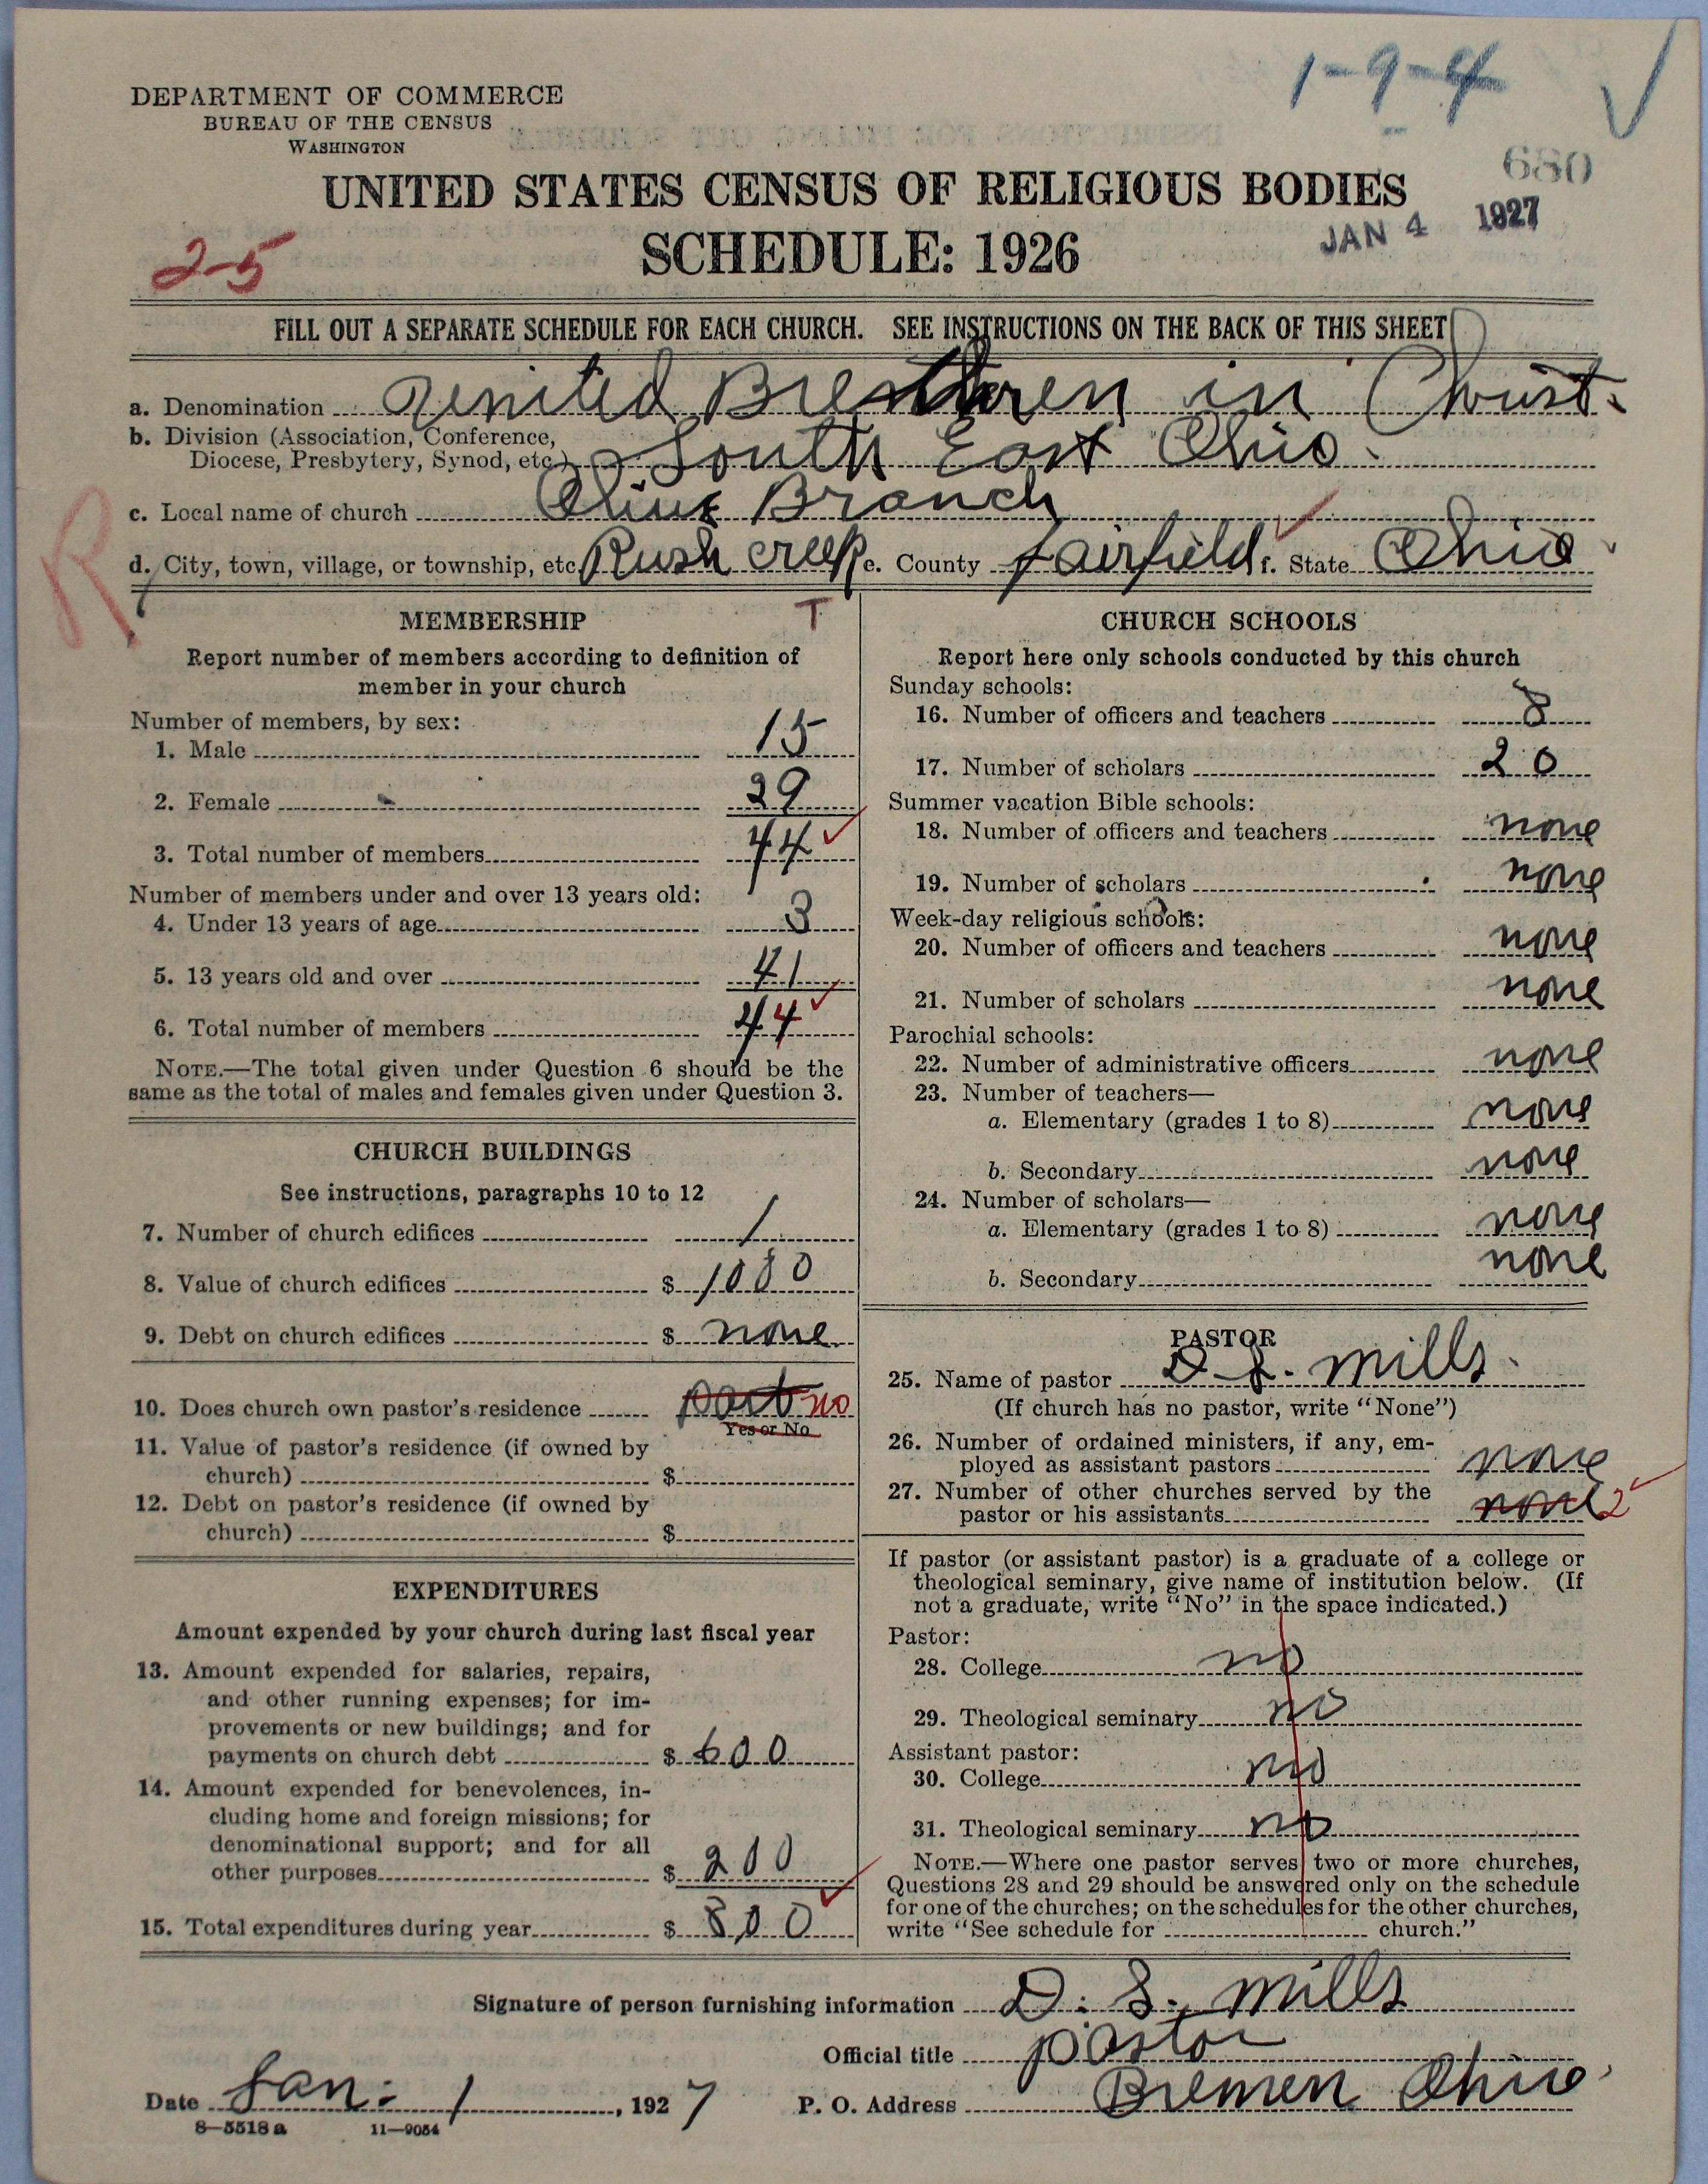 1-9-4
DEPARTMENT OF COMMERCE
BUREAU OF THE CENSUS
WASHINGTON
680
UNITED STATES CENSUS OF RELIGIOUS BODIES
JAN 4 1927
SCHEDULE: 1926
2-5
FILL OUT A SEPARATE SCHEDULE FOR EACH CHURCH. SEE INSTRUCTIONS ON THE BACK OF THIS SHEET
a. Denomination United Brethren in Christ.
b. Division (Association, Conference,
Diocese, Presbytery, Synod, etc.) South East Ohio.
c. Local name of church Olive Branch
R
d. City, town, village, or township, etc. Rush creek e. County fairfield f. State Ohio
MEMBERSHIP T
Report number of members according to definition of
member in your church
Number of members, by sex:
1. Male 15
2. Female 29
3. Total number of members 44
Number of members under and over 13 years old:
4. Under 13 years of age 3
5. 13 years old and over 41
6. Total number of members 44
NOTE.—The total given under Question 6 should be the
same as the total of males and females given under Question 3.
CHURCH BUILDINGS
See instructions, paragraphs 10 to 12
7. Number of church edifices 1
8. Value of church edifices $ 1000
9. Debt on church edifices $ none
10. Does church own pastor's residence part no
Yes or No
11. Value of pastor's residence (if owned by
church) $
12. Debt on pastor's residence (if owned by
church) $
EXPENDITURES
Amount expended by your church during last fiscal year
13. Amount expended for salaries, repairs,
and other running expenses; for im-
provements or new buildings; and for
payments on church debt $ 600
14. Amount expended for benevolences, in-
cluding home and foreign missions; for
denominational support; and for all
other purposes $ 200
15. Total expenditures during year $ 800
CHURCH SCHOOLS
Report here only schools conducted by this church
Sunday schools:
16. Number of officers and teachers 8
17. Number of scholars 20
Summer vacation Bible schools:
18. Number of officers and teachers none
19. Number of scholars none
Week-day religious schools:
20. Number of officers and teachers none
21. Number of scholars none
Parochial schools:
22. Number of administrative officers none
23. Number of teachers—
a. Elementary (grades 1 to 8) none
b. Secondary none
24. Number of scholars—
a. Elementary (grades 1 to 8) none
b. Secondary none
PASTOR
25. Name of pastor D. S. Mills.
(If church has no pastor, write "None")
26. Number of ordained ministers, if any, em-
ployed as assistant pastors none
27. Number of other churches served by the
pastor or his assistants none 2
If pastor (or assistant pastor) is a graduate of a college or
theological seminary, give name of institution below. (If
not a graduate, write "No" in the space indicated.)
Pastor:
28. College no
29. Theological seminary no
Assistant pastor:
30. College no
31. Theological seminary no
NOTE.—Where one pastor serves two or more churches,
Questions 28 and 29 should be answered only on the schedule
for one of the churches; on the schedules for the other churches,
write "See schedule for church."
Signature of person furnishing information D. S. Mills
Official title pastor
Date Jan. 1, 1927 P. O. Address Bremen Ohio
8-5518a 11-9054